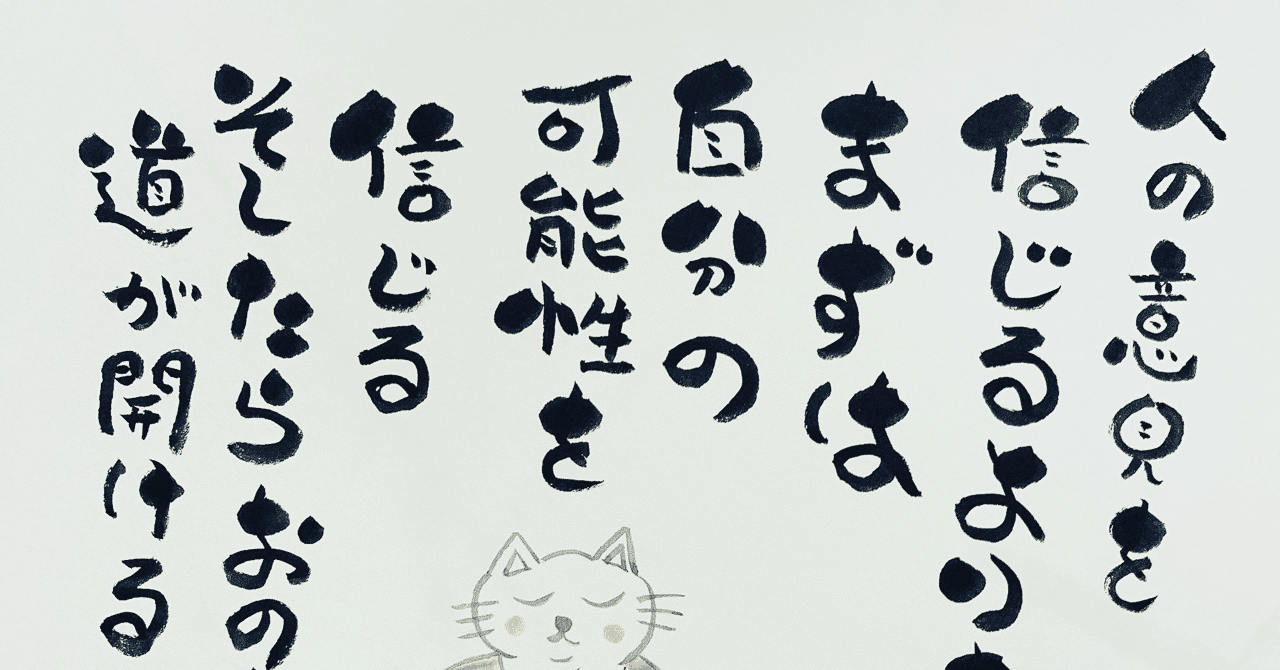 人の意見を
信じるより
まずは
自分の
可能性を
信じる
そしたらおの
道が開ける